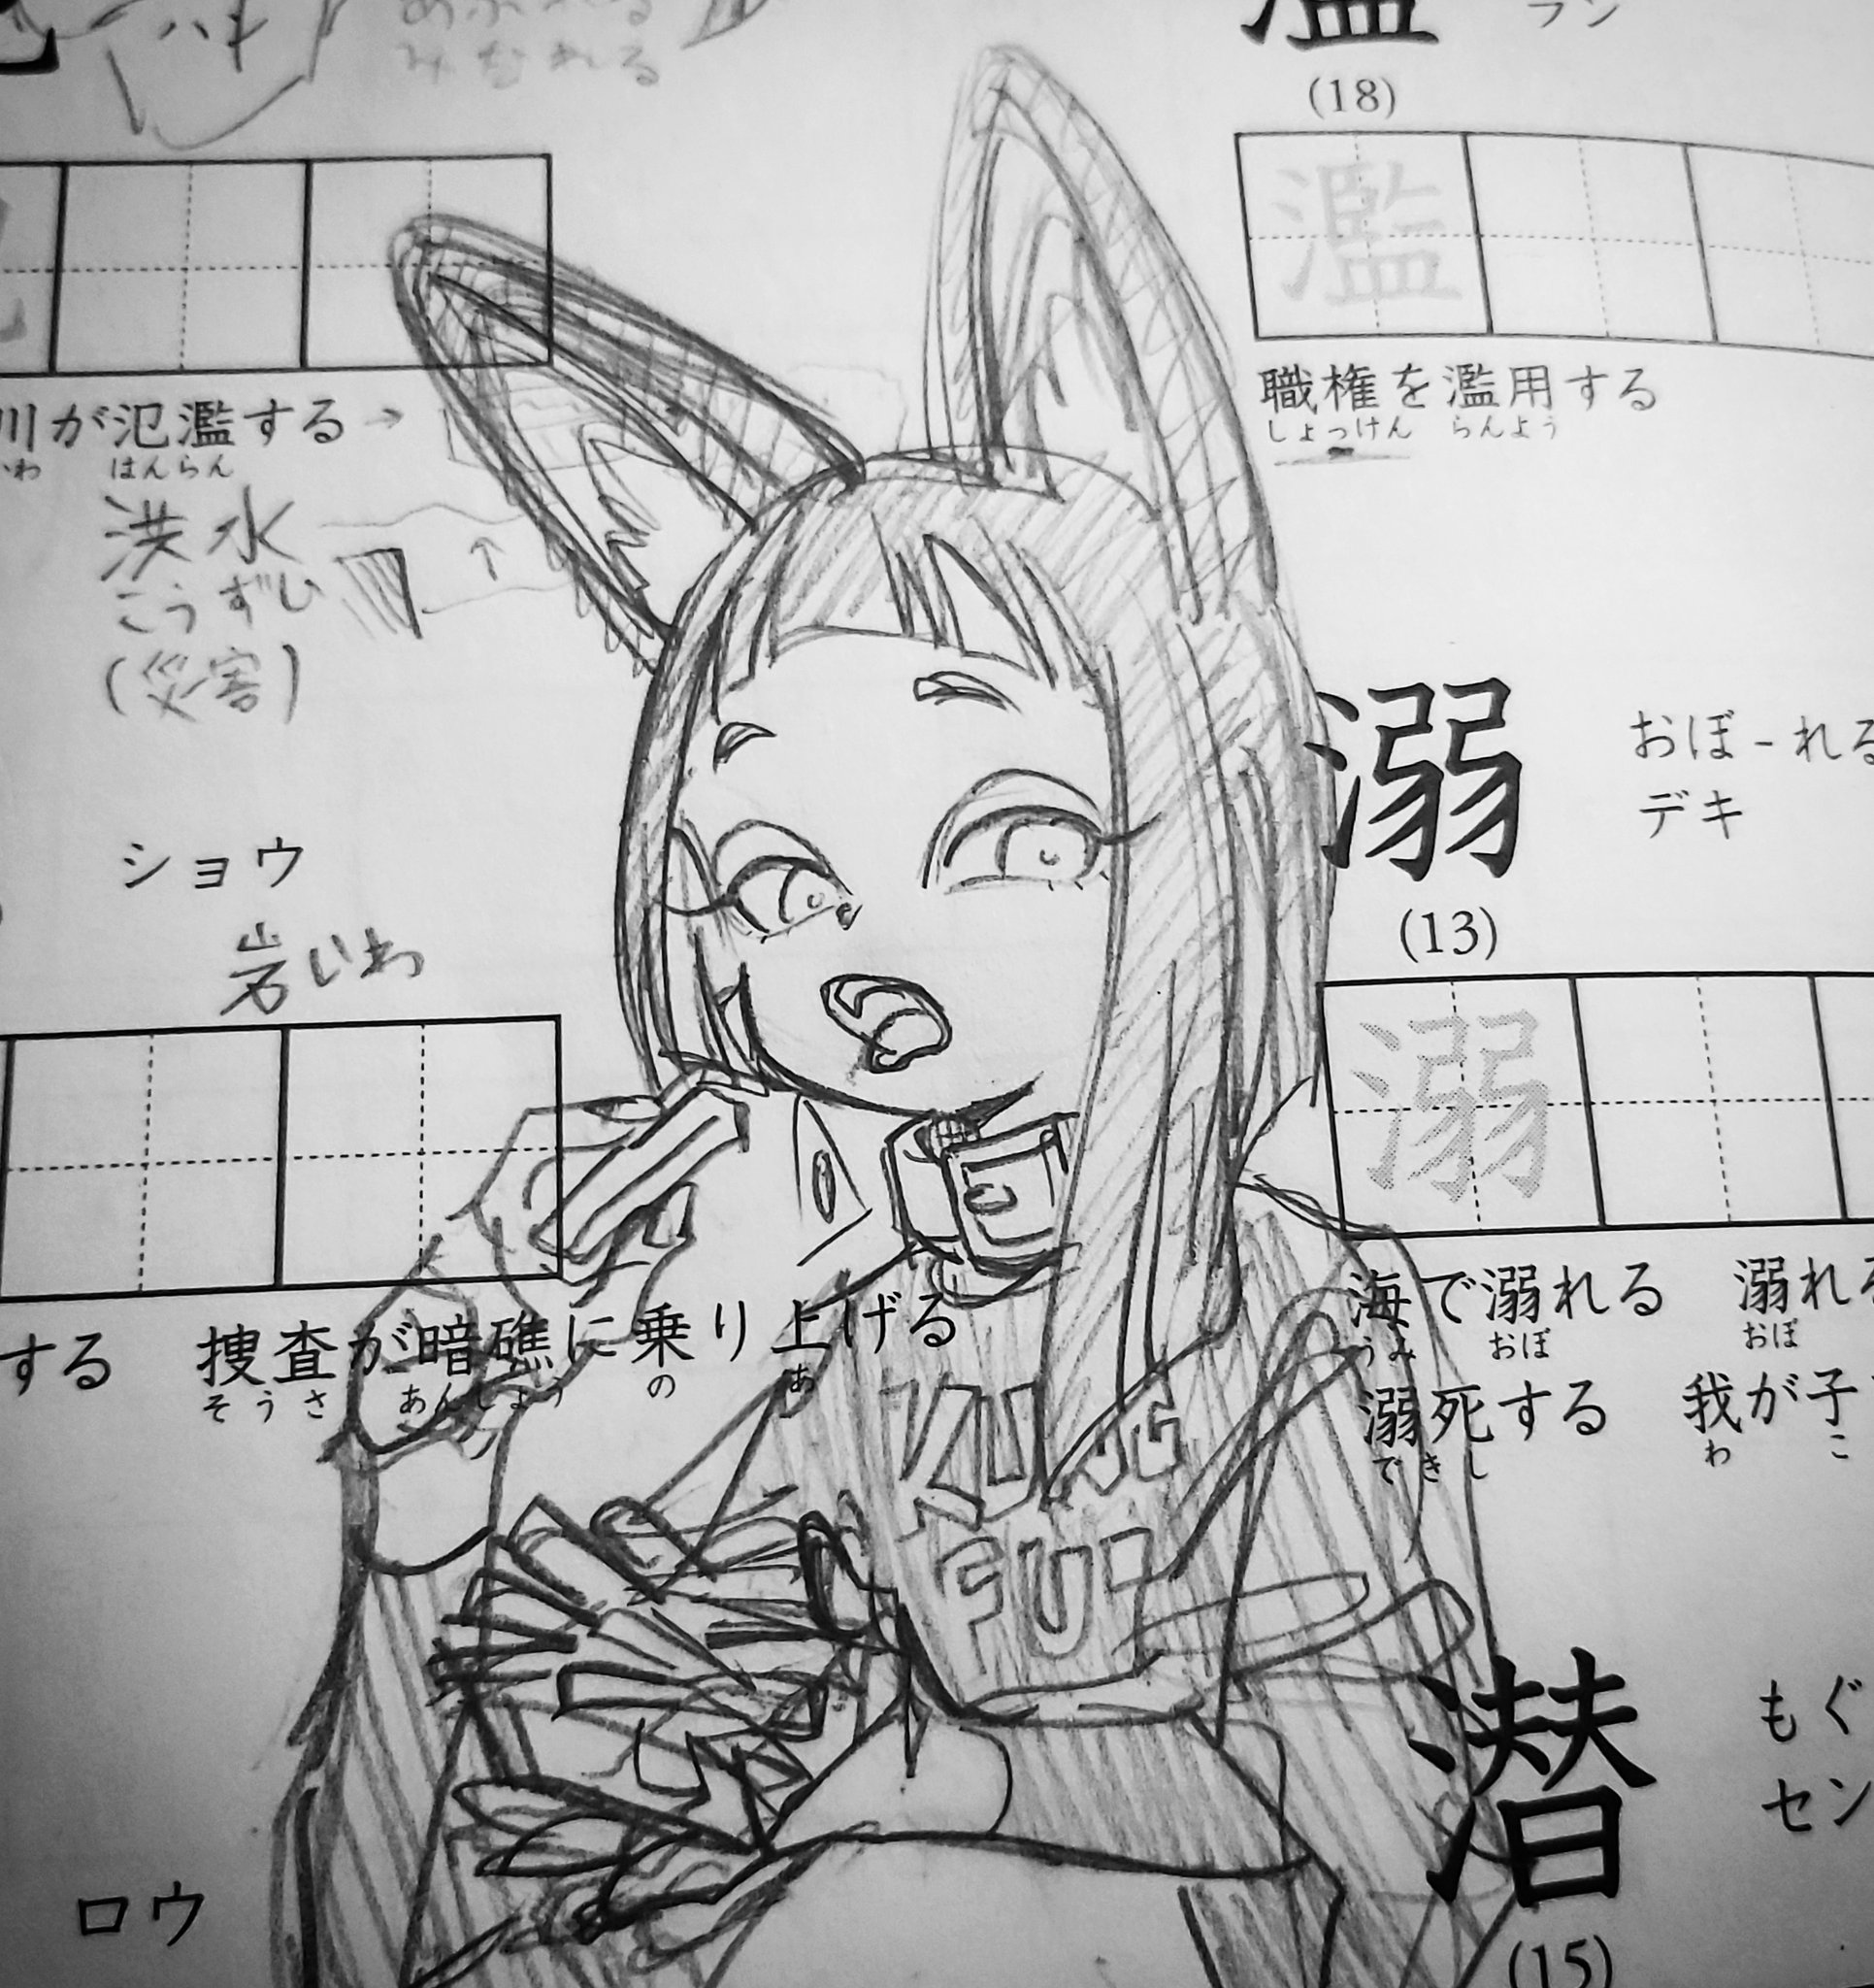 ハキ
濫
(18)
濫
川が氾濫する→
かわ はんらん
洪水
こうずい
(災害)
職権を濫用する
しょっけん らんよう
溺
おぼ-れる
デキ
(13)
溺
ショウ
岩いわ
する 捜査が暗礁に乗り上げる
そうさ あんしょう の あ
海で溺れる 溺れる
うみ おぼ おぼ
溺死する 我が子
できし わ こ
KUNG
FU!
潜
もぐ
セン
(15)
ロウ